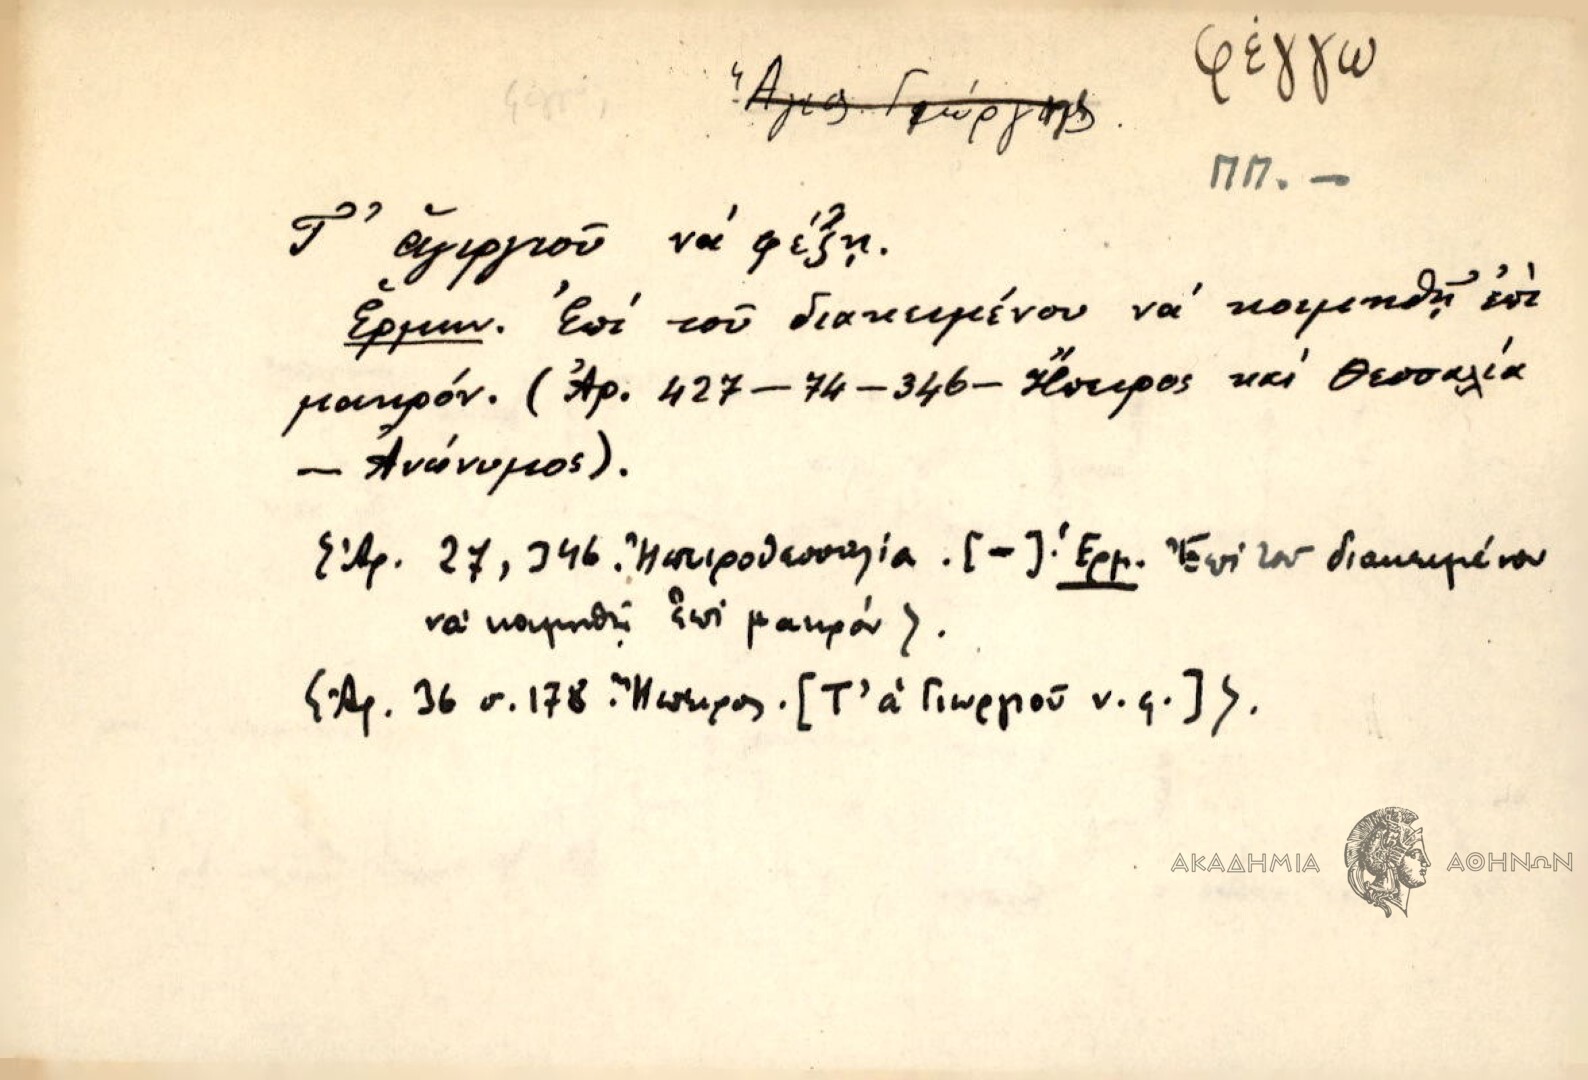 φέγγω
Ἅγιος Γεώργης.
ΠΠ. —
Τ' ἅγιργιοῦ νά φέξῃ.
Ἑρμην. Ἐπί τοῦ διακειμένου νά κοιμηθῇ ἐπί
μακρόν. (Ἀρ. 427 — 74 — 346 — Ἤπειρος καί Θεσσαλία
— Ἀνώνυμος).
{Ἀρ. 27, 346. Ἠπειροθεσσαλία. [-] Ἑρμ. Ἐπί τοῦ διακειμένου
νά κοιμηθῇ ἐπί μακρόν}.
{Ἀρ. 36 σ. 178 Ἤπειρος. [Τ' ἁ Γιωργιοῦ ν. φ.]}.
ΑΚΑΔΗΜΙΑ ΑΘΗΝΩΝ